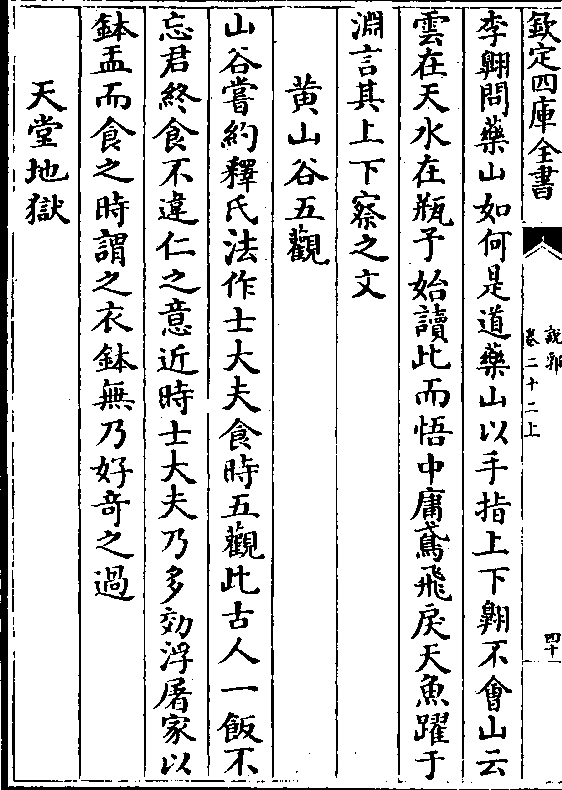 欽定四庫全書
說郛
卷二十二上
四十一
李翺問藥山如何是道藥山以手指上下翺不會山云
雲在天水在瓶予始讀此而悟中庸鳶飛戾天魚躍于
淵言其上下察之文
黄山谷五觀
山谷嘗約釋氏法作士大夫食時五觀此古人一飯不
忘君終食不違仁之意近時士大夫乃多効浮屠家以
鉢盂而食之時謂之衣鉢無乃好奇之過
天堂地獄